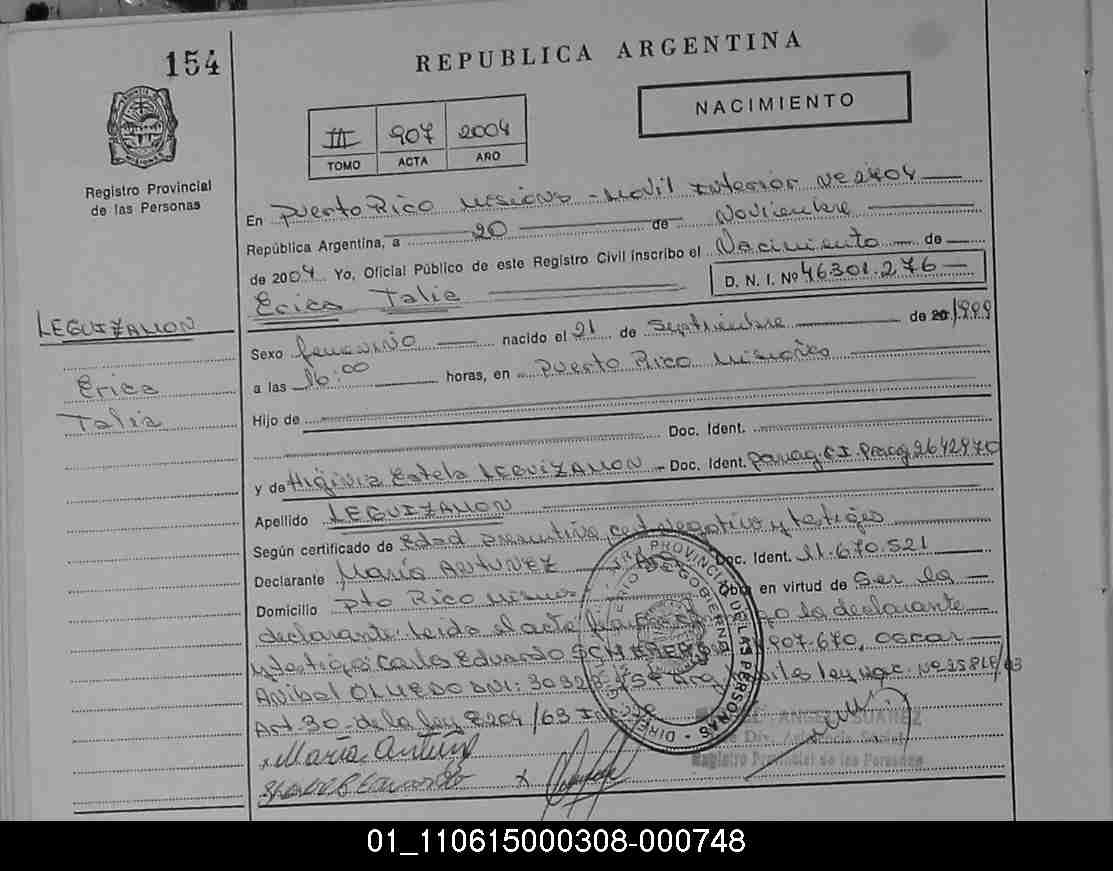 154
REPUBLICA ARGENTINA
NACIMIENTO
III 907 2004
TOMO ACTA AÑO
Registro Provincial
de las Personas
En Puerto Rico Misiones - Movil Interior Nº 2404
República Argentina, a 20 de Noviembre
de 2004 Yo, Oficial Público de este Registro Civil inscribo el Nacimiento de
Erica Talia D. N. I. Nº 46.301.276
LEGUIZAMON
Erica
Talia
Sexo femenino nacido el 21 de Septiembre de 20/1999
a las 16:00 horas, en Puerto Rico Misiones
Hijo de
Doc. Ident.
y de Higinia Estela LEGUIZAMON - Doc. Ident. parag. C.I. Parag 2642970
Apellido LEGUIZAMON
Según certificado de Edad presuntiva cert. negativo y testigos
Declarante María ANTUNEZ Doc. Ident. 11.670.521
Domicilio Pto Rico Obra en virtud de Ser la
declarante. Leido el acta la declarante
y testigos: Carlos Eduardo 907.670, Oscar
Anibal OLMEDO DNI: 30328 ley nac. Nº
Art. 30 - de la ley 8204/63
María
PROVINCIAL DE LAS PERSONAS
ANGEL SUAREZ
Registro Provincial de las Personas
01_110615000308-000748